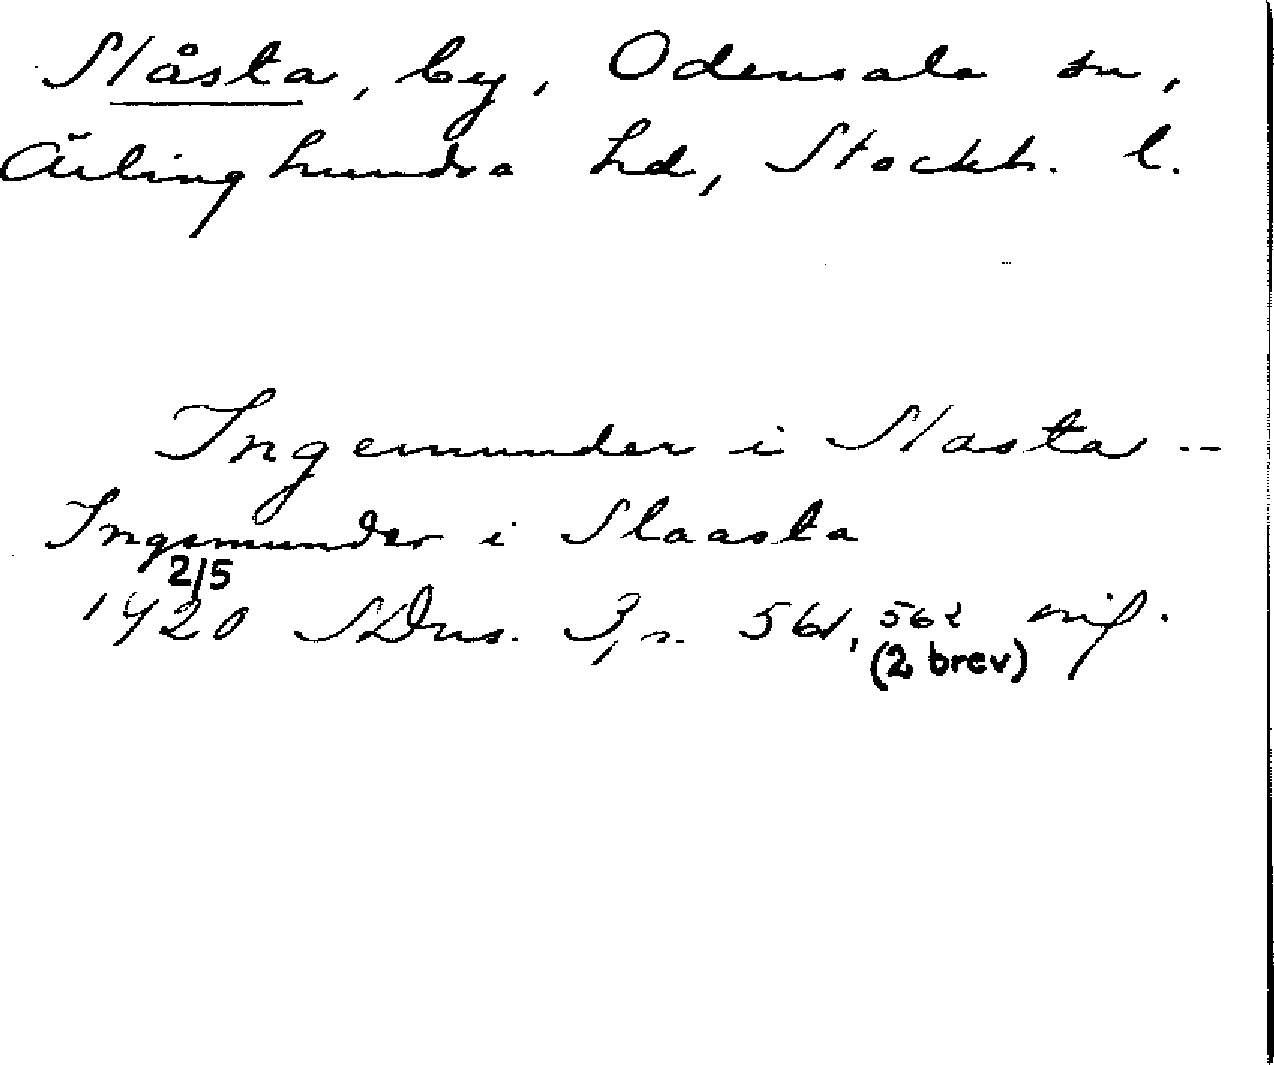 Slåsta, by, Odensala sn,
Ärlinghundra hd, Stockh. l.
Ingemunder i Slasta --
Ingemunder i Slaasta
2/5
1420 SDns. 3, s. 561, 562 orig.
(2 brev)